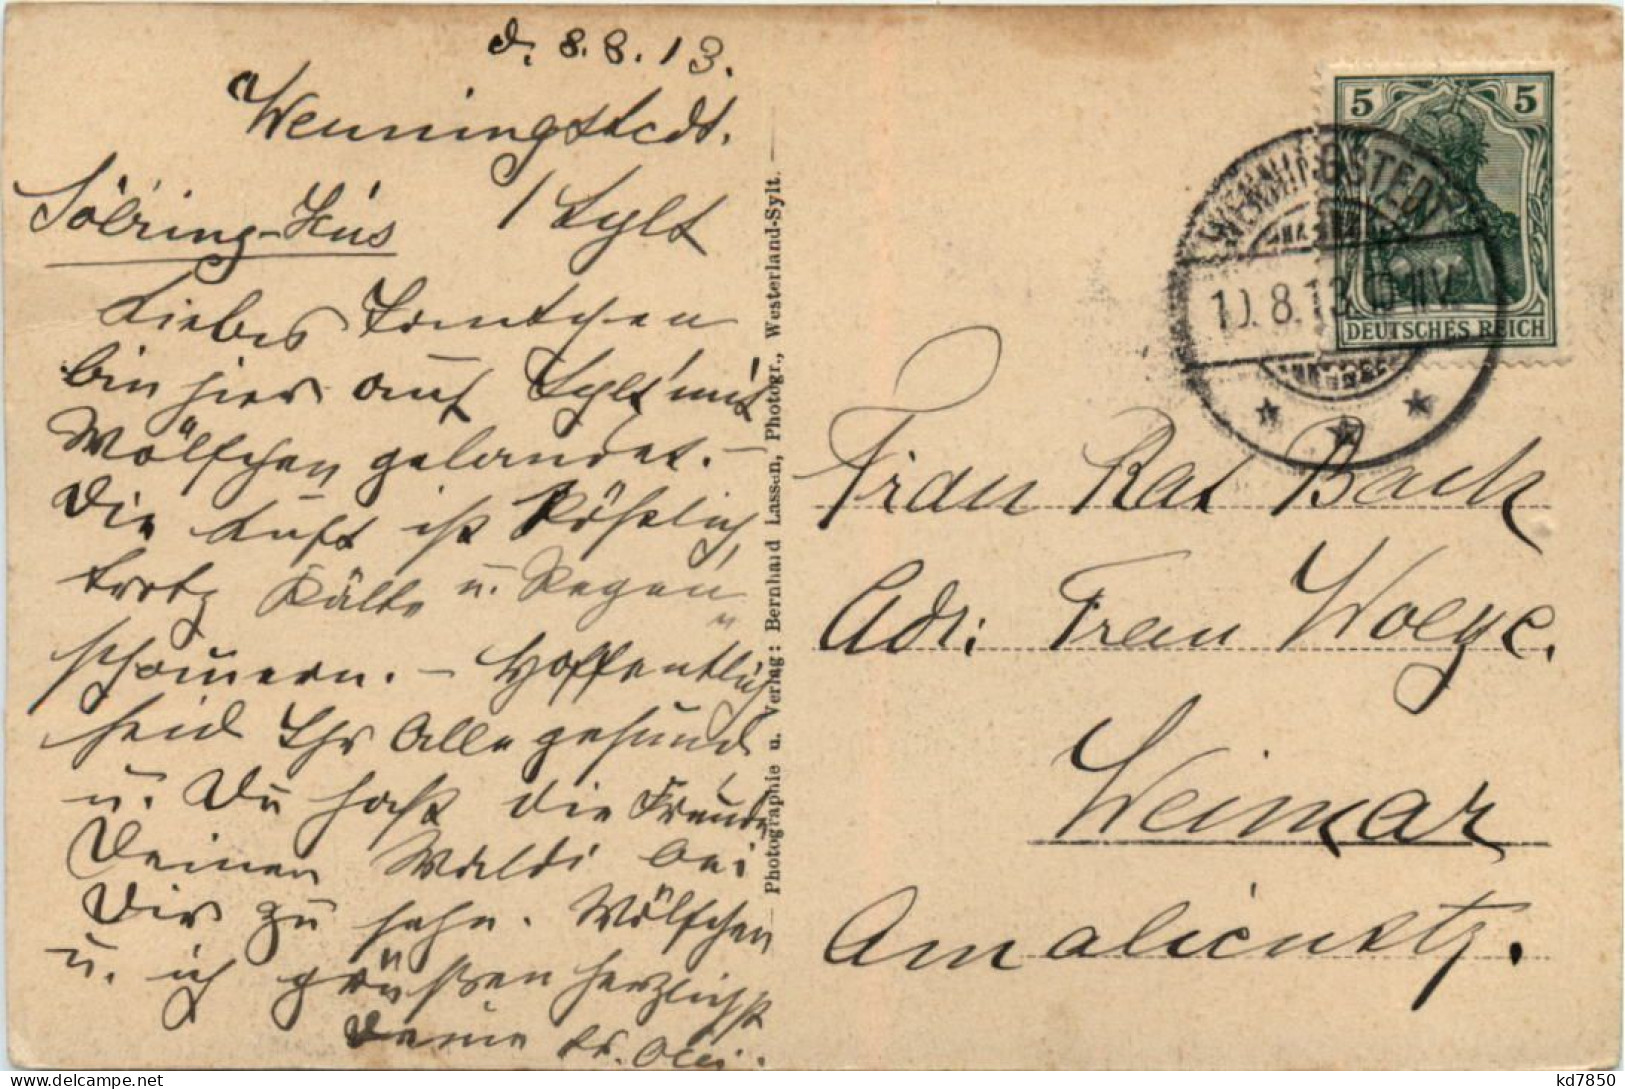 d. 8.8.13.
Wenningstedt.
Sölring-Hüs / Sylt
Liebes Tantchen
bin hier auf Sylt mit
Wölfchen gelandet. –
Die Luft ist köstlich,
trotz Kälte u. Regen
schauern. – Hoffentlich
seid Ihr Alle gesund
u. Du hast die Freude
Deinen Waldi bei
Dir zu sehn. Wölfchen
u. ich grüßen herzlichst
Deine
Photographie u. Verlag: Bernhard Lassen, Photogr., Westerland-Sylt.
5 5
DEUTSCHES REICH
WENNINGSTEDT
10.8.13.
Frau Rat Back
Adr: Frau
Weimar
Amalienstr.
kd7850